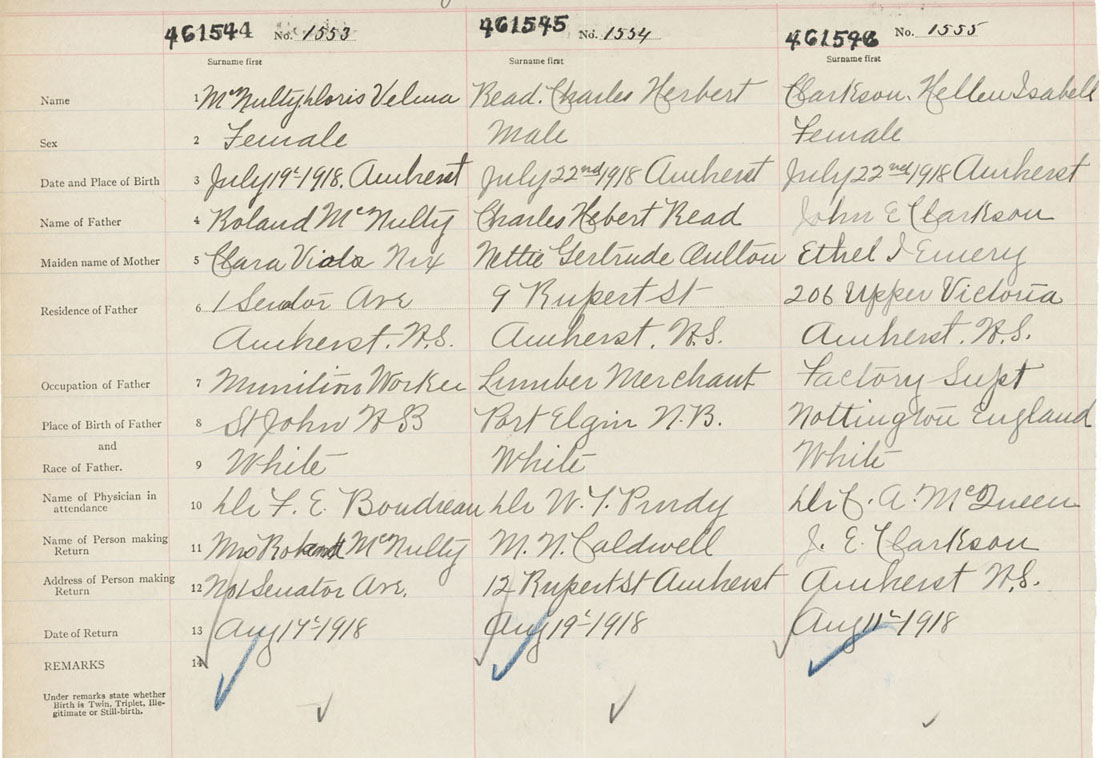 461544 No. 1553 461545 No. 1554 461546 No. 1555
Surname first Surname first Surname first
Name 1 McNulty Doris Velma Read. Charles Herbert Clarkson. Hellen Isabell
Sex 2 Female Male Female
Date and Place of Birth 3 July 19th 1918. Amherst July 22nd 1918 Amherst July 22nd 1918 Amherst
Name of Father 4 Roland McNulty Charles Hebert Read John E Clarkson
Maiden name of Mother 5 Clara Viola Nix Nettie Gertrude Ethel I Emery
Residence of Father 6 1 Senator Ave 9 Rupert St 206 Upper Victoria
Amherst. N.S. Amherst. N.S. Amherst. N.S.
Occupation of Father 7 Munition Worker Lumber Merchant Factory Supt
Place of Birth of Father 8 St John N B Port Elgin N.B. Nottington England
and
Race of Father. 9 White White White
Name of Physician in
attendance 10 Dr F. E. Boudreau Dr W. T. Purdy Dr C. A. McQueen
Name of Person making
Return 11 Mrs Roland McNulty M. N. Caldwell J. E. Clarkson
Address of Person making
Return 12 No 1 Senator Ave. 12 Rupert St Amherst Amherst N.S.
Date of Return 13 Aug 17th 1918 Aug 19th 1918 Aug 11th 1918
REMARKS 14
Under remarks state whether
Birth is Twin, Triplet, Ille-
gitimate or Still-birth.